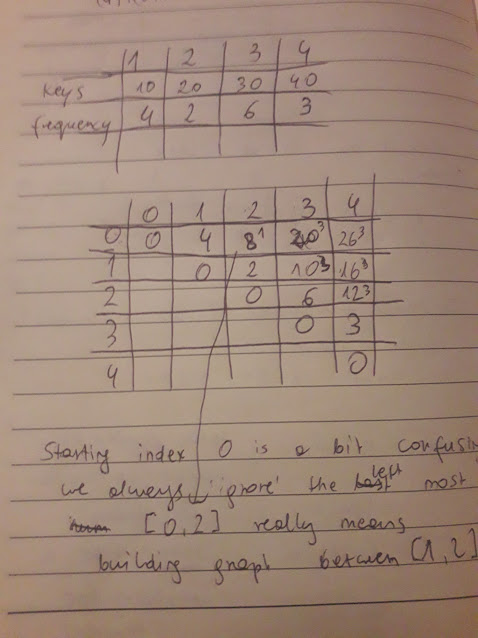 1 2 3 4
keys 10 20 30 40
frequency 4 2 6 3
0 1 2 3 4
0 0 4 8¹ 20³ 26³
1 0 2 10³ 16³
2 0 6 12³
3 0 3
4 0
Starting index 0 is a bit confusin
we always 'ignore' the left most
[0,2] really means
building graph between [1,2]